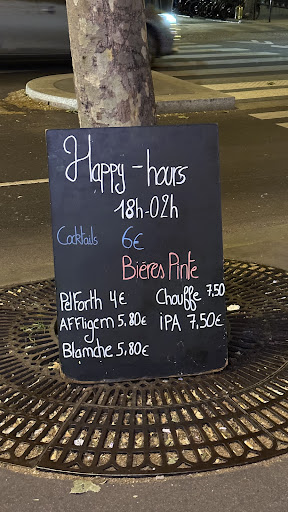 Happy-hours
18h-02h
Cocktails 6€
Bières Pinte
Pelforth 4€ Chouffe 7,50
AFFligem 5,80€ IPA 7,50€
Blanche 5,80€